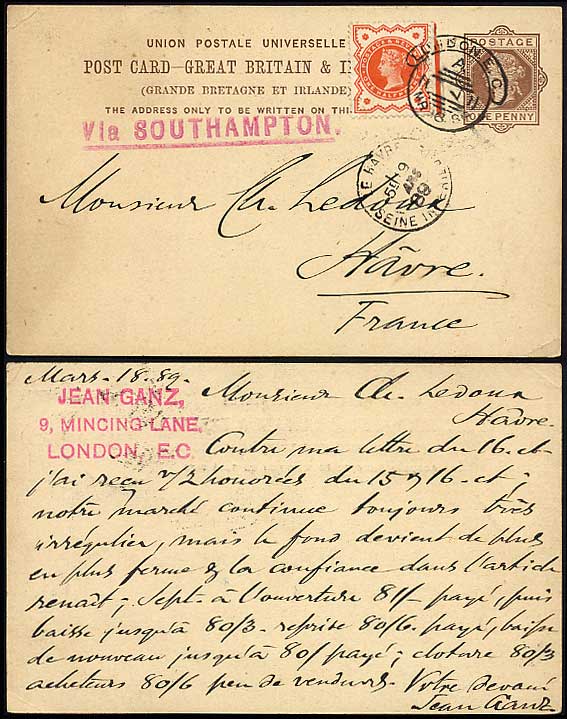 UNION POSTALE UNIVERSELLE
POST CARD—GREAT BRITAIN & I
(GRANDE BRETAGNE ET IRLANDE)
THE ADDRESS ONLY TO BE WRITTEN ON THI
POSTAGE
ONE PENNY
POSTAGE & REVE
LONDON E.C.
MR 18 89
Via SOUTHAMPTON.
LE HAVRE
SEINE INF
89
Monsieur Ch. Ledoux
Hâvre.
France
Mars. 18. 89.
JEAN GANZ,
9, MINCING LANE,
LONDON, E.C.
Monsieur Ch. Ledoux
Hâvre.
Contre ma lettre du 16. ct
j'ai reçu 2 honorées du 15 & 16 - ct;
notre marché continue toujours très
irrégulier, mais le fond devient de plus
en plus ferme & la confiance dans l'article
renait; Sept. à l'ouverture 81/- payé, puis
baisse jusqu'à 80/3 - reprise 80/6. payé, baisse
de nouveau jusqu'à 80/ payé; cloture 80/3
acheteurs 80/6 peu de vendeurs. Votre dévoué
Jean Ganz